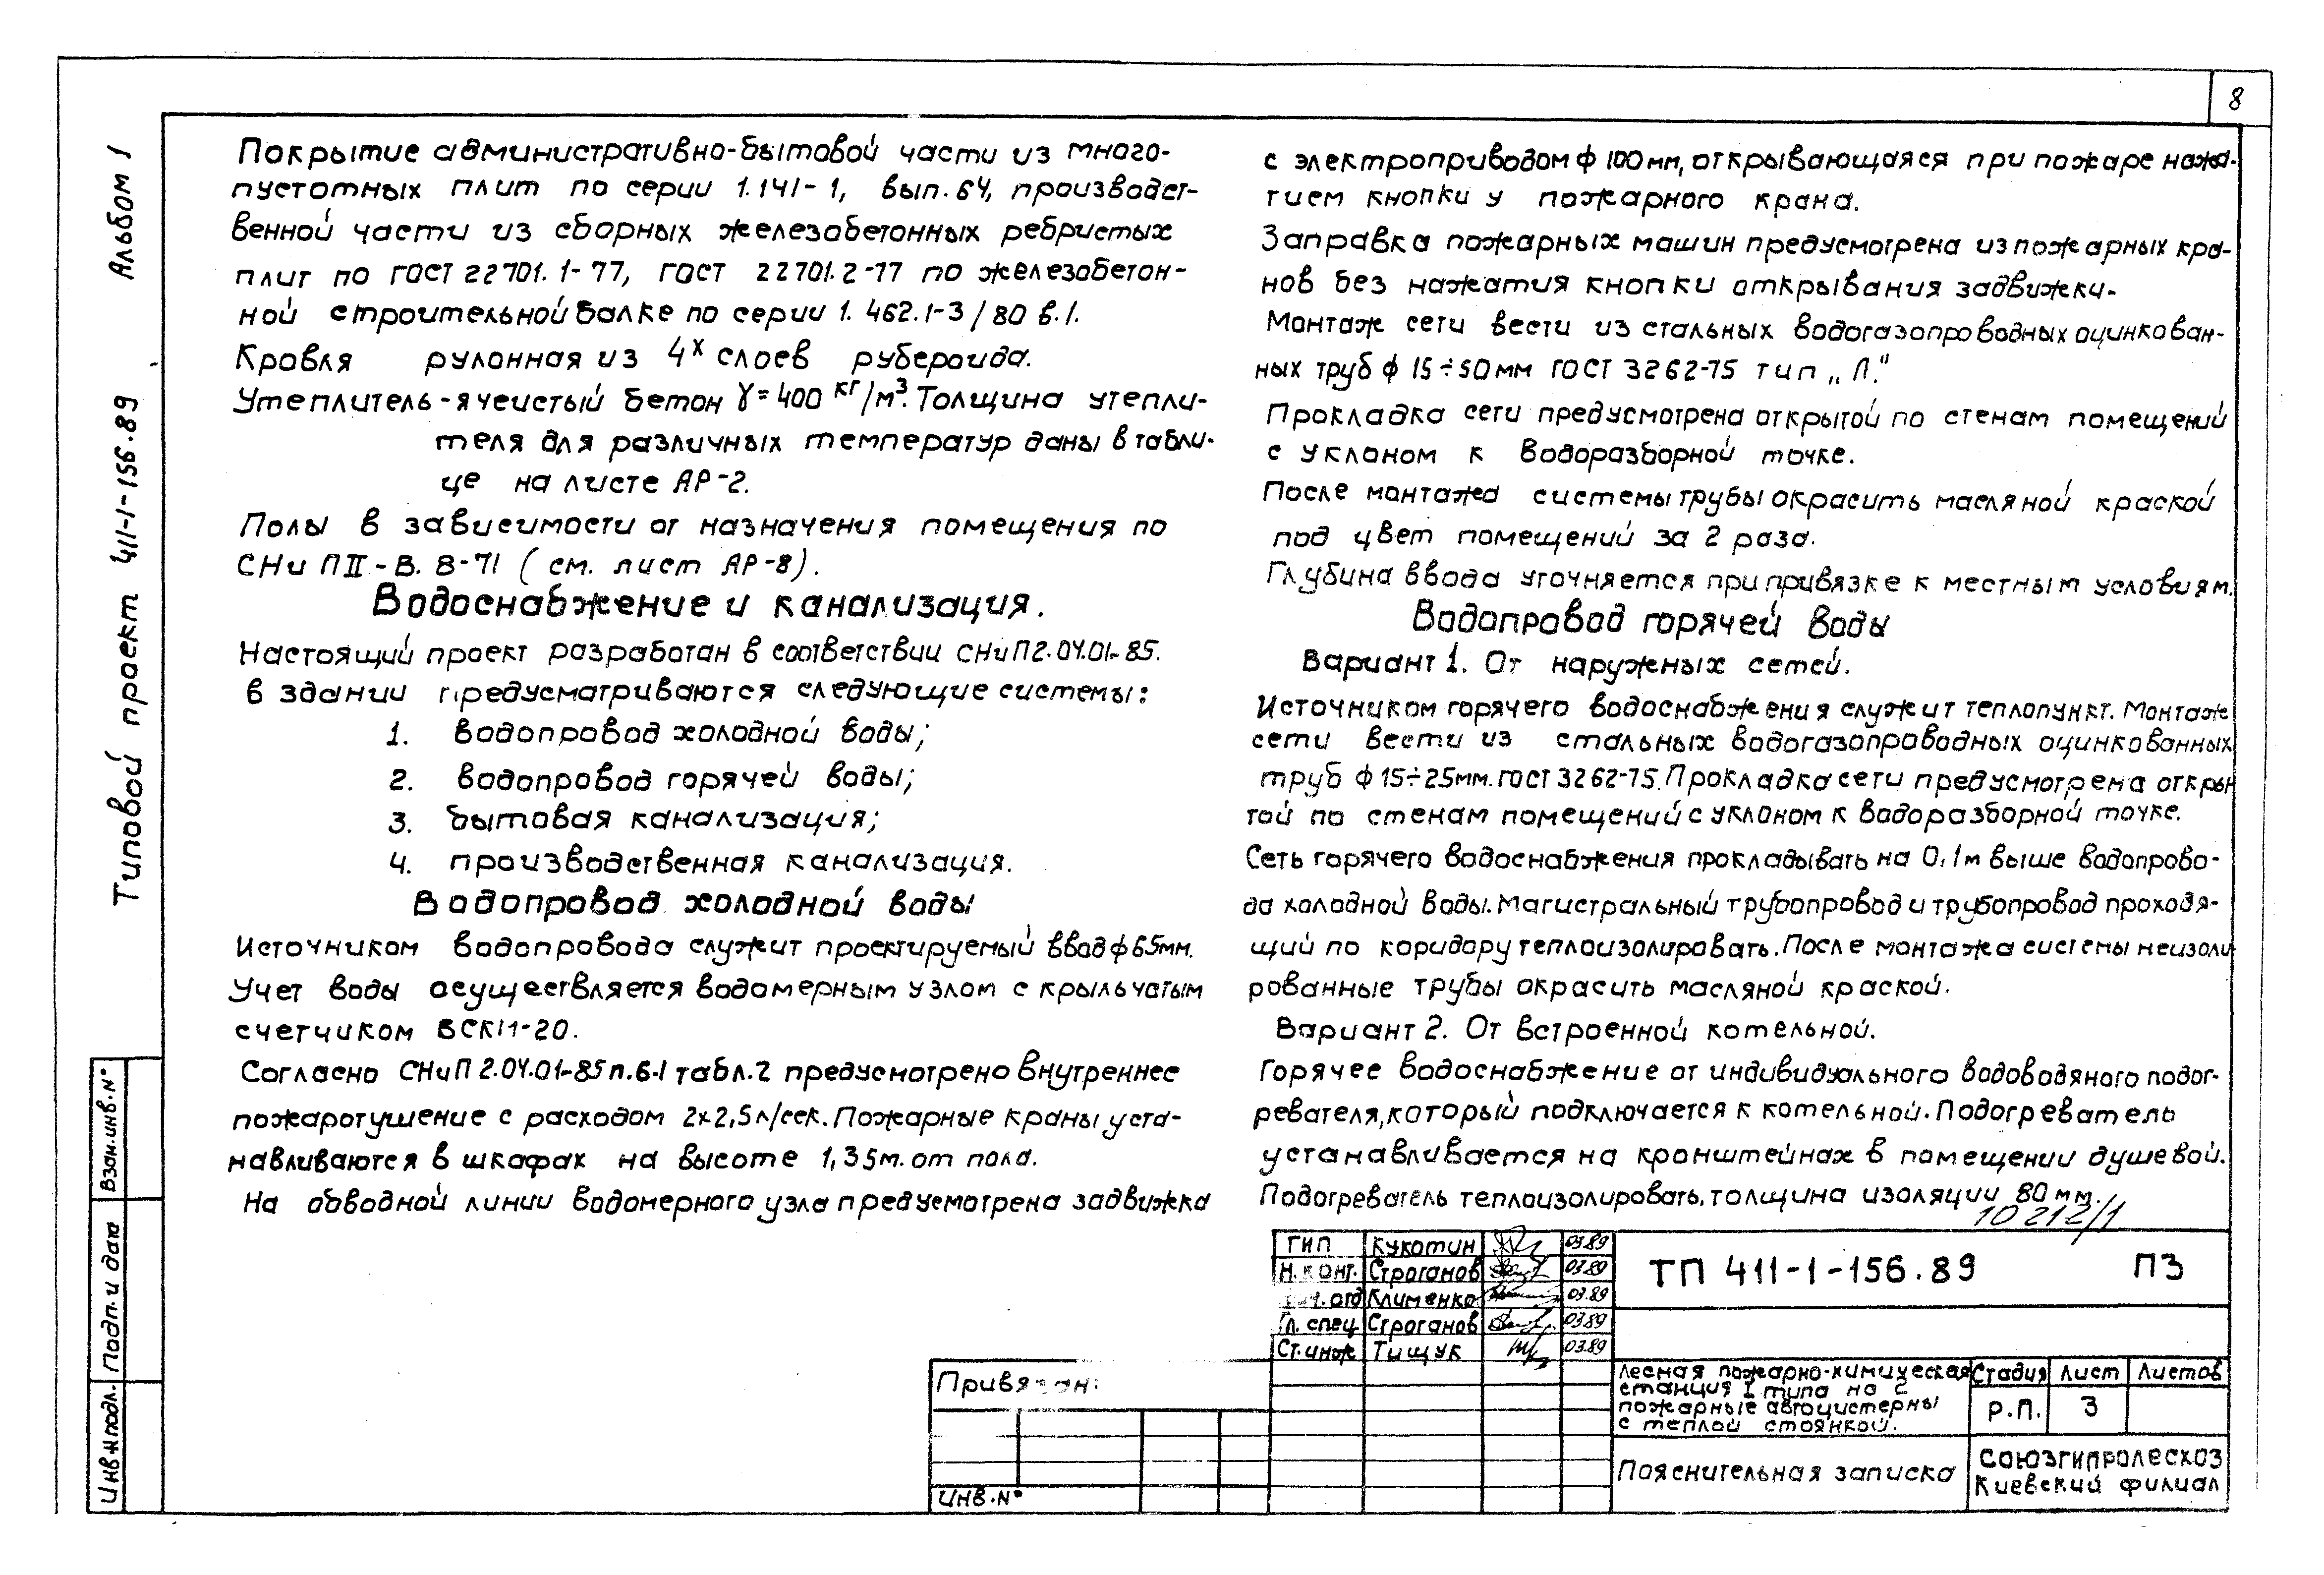 8
Альбом 1
Типовой проект 411-1-156.89
Покрытие административно-бытовой части из много-
пустотных плит по серии 1.141-1, вып. 64, производст-
венной части из сборных железобетонных ребристых
плит по ГОСТ 22701.1-77, ГОСТ 22701.2-77 по железобетон-
ной строительной балке по серии 1.462.1-3/80 в.1.
Кровля рулонная из 4х слоев рубероида.
Утеплитель-ячеистый бетон γ=400 кг/м³. Толщина утепли-
теля для различных температур даны в табли-
це на листе АР-2.
Полы в зависимости от назначения помещения по
СНиП II-В. 8-71 (см. лист АР-8).
Водоснабжение и канализация.
Настоящий проект разработан в соответствии СНиП 2.04.01-85.
В здании предусматриваются следующие системы:
1. водопровод холодной воды;
2. водопровод горячей воды;
3. бытовая канализация;
4. производственная канализация.
Водопровод холодной воды
Источником водопровода служит проектируемый ввод ф65мм.
Учет воды осуществляется водомерным узлом с крыльчатым
счетчиком ВСКМ-20.
Согласно СНиП 2.04.01-85 п.6.1 табл.2 предусмотрено внутреннее
пожаротушение с расходом 2х2,5 л/сек. Пожарные краны уста-
навливаются в шкафах на высоте 1,35м. от пола.
На обводной линии водомерного узла предусмотрена задвижка
с электроприводом ф 100мм, открывающаяся при пожаре нажа-
тием кнопки у пожарного крана.
Заправка пожарных машин предусмотрена из пожарных кра-
нов без нажатия кнопки открывания задвижки.
Монтаж сети вести из стальных водогазопроводных оцинкован-
ных труб ф 15÷50мм ГОСТ 3262-75 тип „Л."
Прокладка сети предусмотрена открытой по стенам помещений
с уклоном к водоразборной точке.
После монтажа системы трубы окрасить масляной краской
под цвет помещений за 2 раза.
Глубина ввода уточняется при привязке к местным условиям.
Водопровод горячей воды
Вариант 1. От наружных сетей.
Источником горячего водоснабжения служит теплопункт. Монтаж
сети вести из стальных водогазопроводных оцинкованных
труб ф 15÷25мм. ГОСТ 3262-75. Прокладка сети предусмотрена откры
той по стенам помещений с уклоном к водоразборной точке.
Сеть горячего водоснабжения прокладывать на 0,1м выше водопрово-
да холодной воды. Магистральный трубопровод и трубопровод проходя-
щий по коридору теплоизолировать. После монтажа системы неизоли
рованные трубы окрасить масляной краской.
Вариант 2. От встроенной котельной.
Горячее водоснабжение от индивидуального водоводяного подог-
ревателя, который подключается к котельной. Подогреватель
устанавливается на кронштейнах в помещении душевой.
Подогреватель теплоизолировать, толщина изоляции 80 мм.
10212/1
Взам.инв.N°
Подп. и дата
Инв.N подл.
ГИП Кукотин 03.89
Н.конт. Строганов 03.89
отд Клименко 03.89
Гл. спец Строганов 03.89
Ст.инж Тищук 03.89
ТП 411-1-156.89 ПЗ
Лесная пожарно-химическая
станция I типа на 2
пожарные автоцистерны
с теплой стоянкой.
Стадия Лист Листов
Р.П. 3
Пояснительная записка
СОЮЗГИПРОЛЕСХОЗ
Киевский филиал
Привязан:
Инв.N°